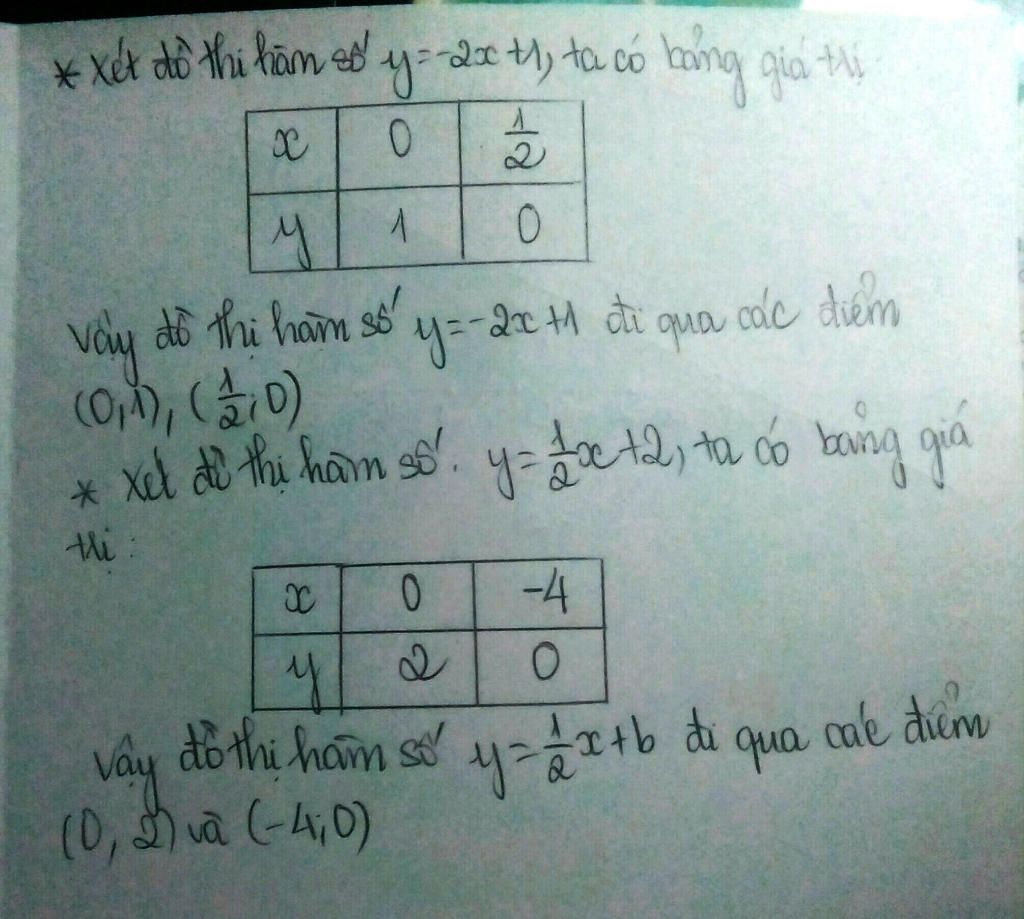 * Xét đồ thị hàm số y=-2x+1, ta có bảng giá trị
x 0 1/2
y 1 0
Vậy đồ thị hàm số y=-2x+1 đi qua các điểm
(0,1), (1/2;0)
* Xét đồ thị hàm số. y=1/2x+2, ta có bảng giá
trị:
x 0 -4
y 2 0
Vậy đồ thị hàm số y=1/2x+b đi qua các điểm
(0, 2) và (-4;0)